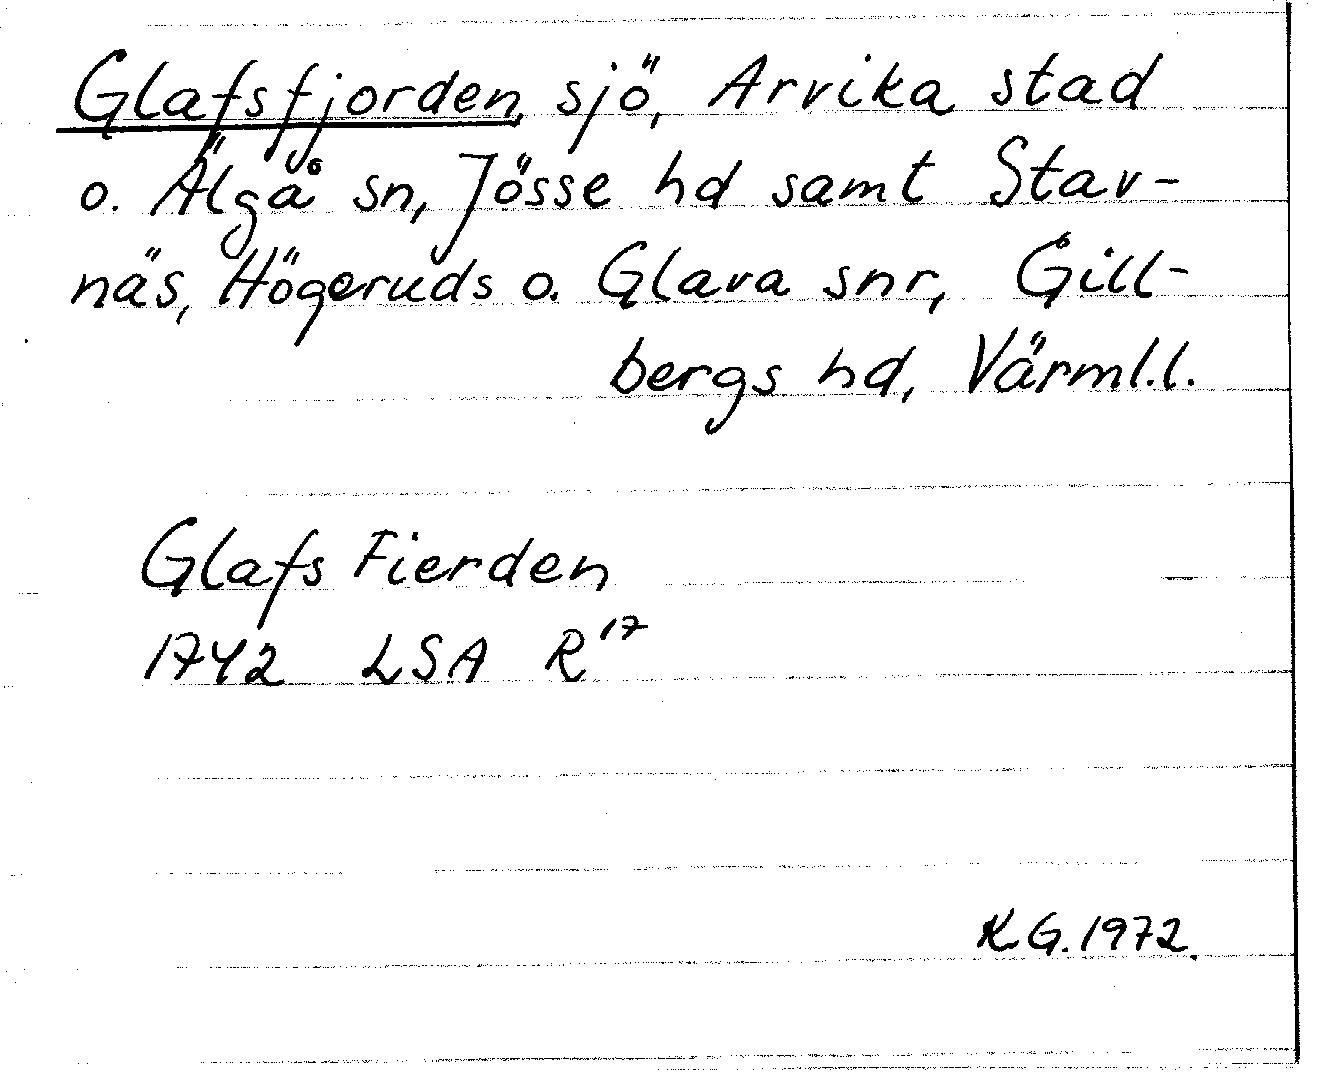 Glafsfjorden, sjö, Arvika stad
o. Älgå sn, Jösse hd samt Stav-
näs, Högeruds o. Glava snr, Gill-
bergs hd, Värml.l.
Glafs Fierden
1742 LSA R¹⁷
KG. 1972.